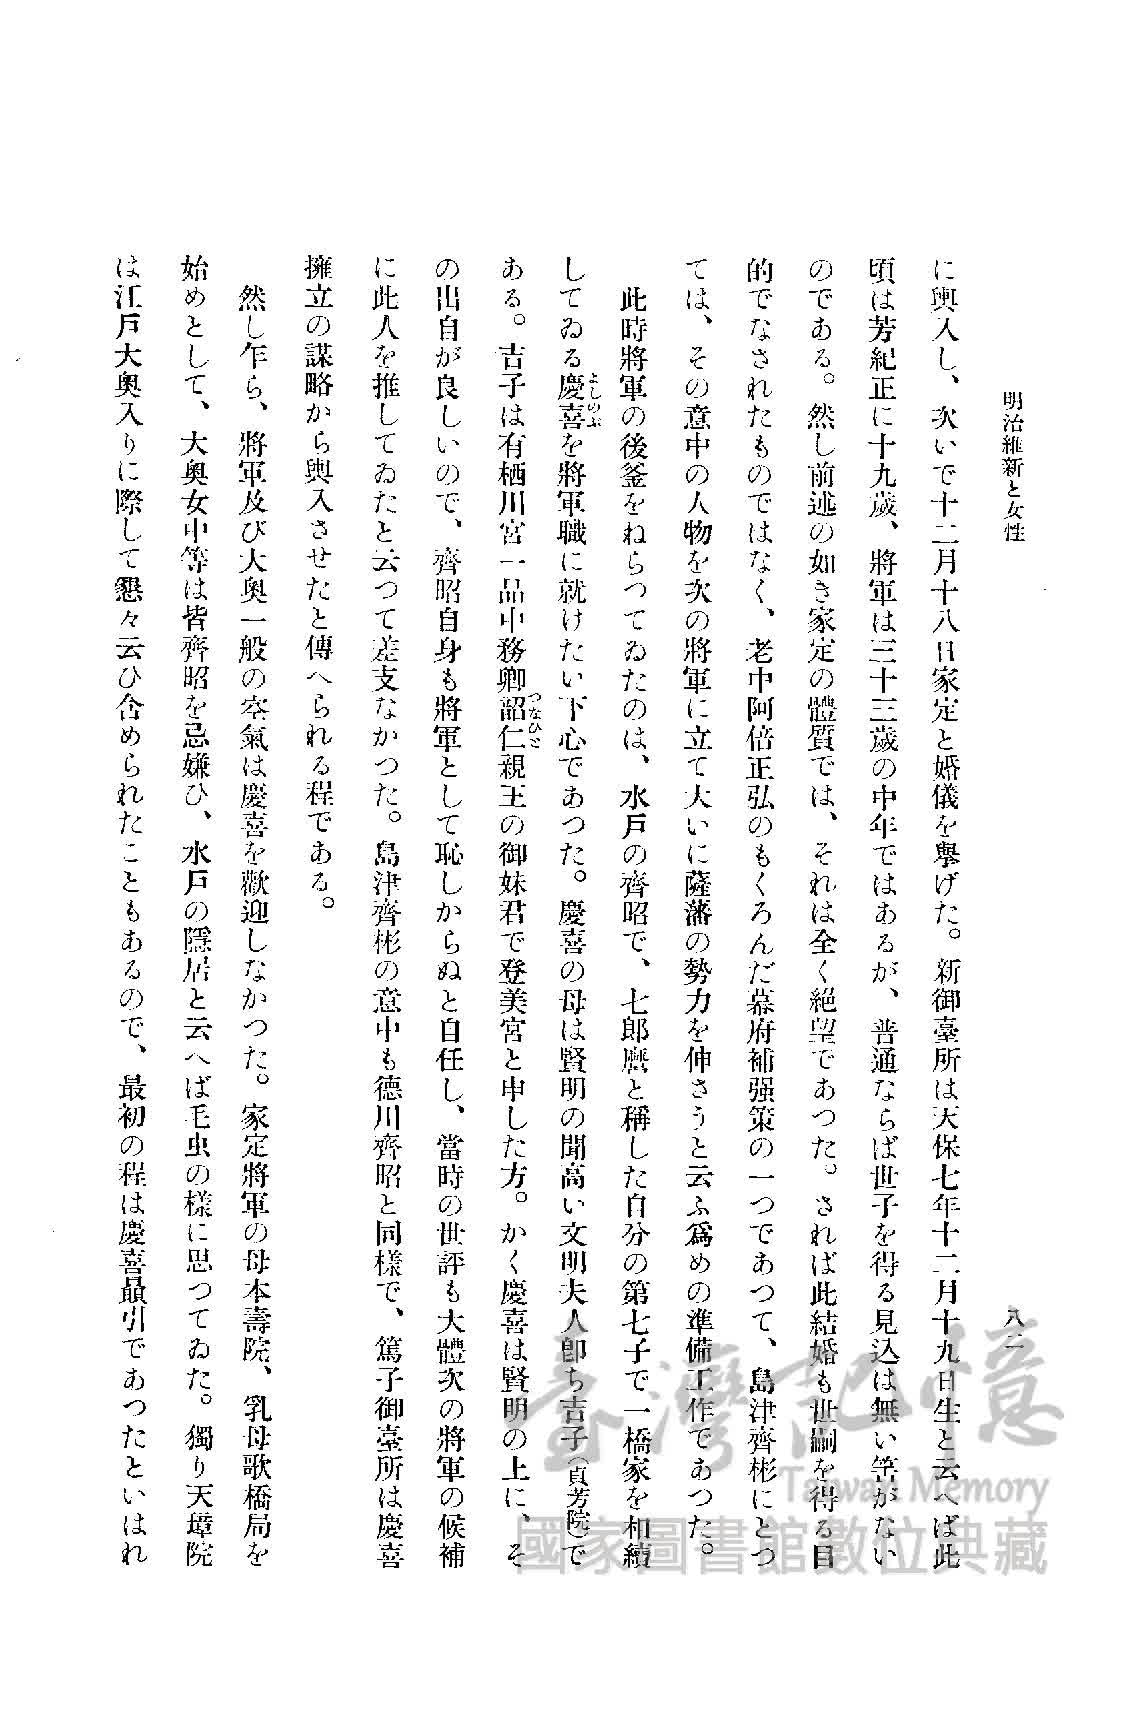 明治維新と女性
八二
に輿入し、次いで十二月十八日家定と婚儀を擧げた。新御臺所は天保七年十二月十九日生と云へば此
頃は芳紀正に十九歲、將軍は三十三歲の中年ではあるが、普通ならば世子を得る見込は無い筈がない
のである。然し前述の如き家定の體質では、それは全く絕望であつた。されば此結婚も世嗣を得る目
的でなされたものではなく、老中阿倍正弘のもくろんだ幕府補强策の一つであつて、島津齊彬にとつ
ては、その意中の人物を次の將軍に立て大いに薩藩の勢力を伸さうと云ふ爲めの準備工作であつた。
此時將軍の後釜をねらつてゐたのは、水戶の齊昭で、七郎麿と稱した自分の第七子で一橋家を相續
してゐる慶喜を將軍職に就けたい下心であつた。慶喜の母は賢明の聞高い文明夫人卽ち吉子（貞芳院）で
よしのぶ
ある。吉子は有栖川宮一品中務卿韶仁親王の御妹君で登美宮と申した方。かく慶喜は賢明の上に、そ
つなひと
の出自が良しいので、齊昭自身も將軍として恥しからぬと自任し、當時の世評も大體次の將軍の候補
に此人を推してゐたと云つて差支なかつた。島津齊彬の意中も德川齊昭と同樣で、篤子御臺所は慶喜
擁立の謀略から輿入させたと傳へられる程である。
然し乍ら、將軍及び大奧一般の空氣は慶喜を歡迎しなかつた。家定將軍の母本壽院、乳母歌橋局を
始めとして、大奧女中等は皆齊昭を忌嫌ひ、水戶の隱居と云へば毛虫の樣に思つてゐた。獨り天璋院
は江戶大奧入りに際して懇々云ひ含められたこともあるので、最初の程は慶喜贔引であつたといはれ
臺灣記憶
Taiwan Memory
國家圖書館數位典藏